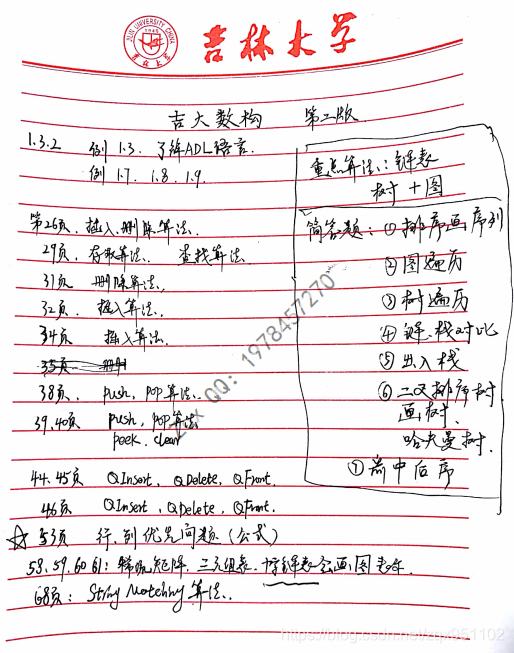 JILIN UNIVERSITY CHINA
1946
吉林大学
吉林大学
吉大数构 第二版
1.3.2 例1.3. 了解ADL语言.
例1.7. 1.8. 1.9
第26页. 插入.删除算法.
29页. 存取算法. 查找算法
31页 删除算法.
32页. 插入算法.
34页 插入算法.
35页 删
38页. push, pop算法.
39.40页 push, pop算法
peek. clear
44.45页 QInsert, QDelete, QFront.
46页 QInsert, QDelete, QFront.
☆53页 行.列优先问题(公式)
58.59.60 61: 稀疏矩阵. 三元组表. 十字链表会画图表示
68页: String Matching 算法.
重点算法: 链表
树+图
简答题: ①排序画序列
②图遍历
③树遍历
④链.栈对比
⑤出入栈
⑥二叉排序树.
画树.
哈夫曼树.
⑦前中后序
QQ: 1978457270
https://blog.csdn.net/zqx951102